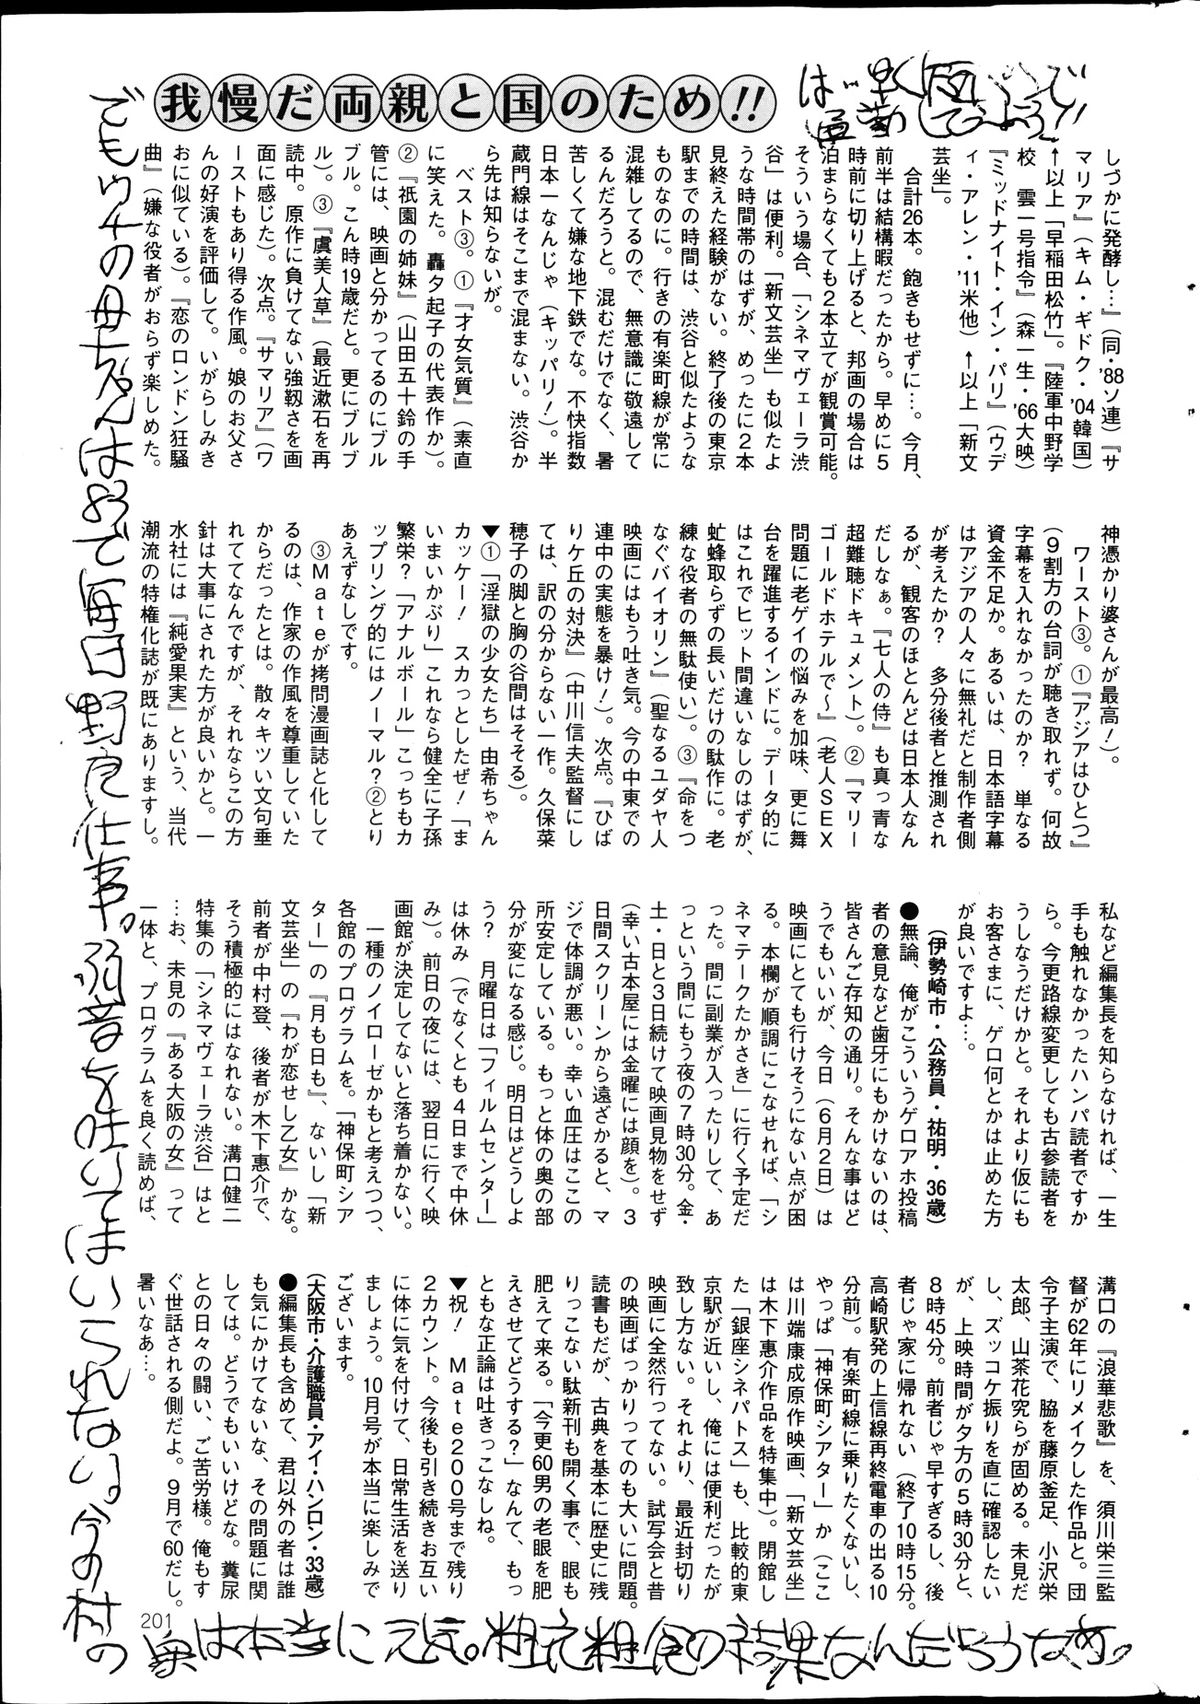 我慢だ両親と国のため!!
しづかに発酵し…』(同・'88ソ連)『サ
マリア』(キム・ギドク・'04韓国)
↑以上「早稲田松竹」。『陸軍中野学
校　雲一号指令』(森一生・'66大映)
『ミッドナイト・イン・パリ』(ウデ
ィ・アレン・'11米他)↑以上「新文
芸坐」。
　合計26本。飽きもせずに…。今月、
前半は結構暇だったから。早めに5
時前に切り上げると、邦画の場合は
泊まらなくても2本立てが観賞可能。
そういう場合、「シネマヴェーラ渋
谷」は便利。「新文芸坐」も似たよ
うな時間帯のはずが、めったに2本
見終えた経験がない。終了後の東京
駅までの時間は、渋谷と似たような
ものなのに。行きの有楽町線が常に
混雑してるので、無意識に敬遠して
るんだろうと。混むだけでなく、暑
苦しくて嫌な地下鉄でな。不快指数
日本一なんじゃ(キッパリ!)。半
蔵門線はそこまで混まない。渋谷か
ら先は知らないが。
　ベスト③。①『才女気質』(素直
に笑えた。轟夕起子の代表作か)。
②『祇園の姉妹』(山田五十鈴の手
管には、映画と分かってるのにブル
ブル。こん時19歳だと。更にブルブ
ル)。③『虞美人草』(最近漱石を再
読中。原作に負けてない強靱さを画
面に感じた)。次点。『サマリア』(ワ
ーストもあり得る作風。娘のお父さ
んの好演を評価して。いがらしみき
おに似ている)。『恋のロンドン狂騒
曲』(嫌な役者がおらず楽しめた。
神憑かり婆さんが最高!)。
　ワースト③。①『アジアはひとつ』
(9割方の台詞が聴き取れず。何故
字幕を入れなかったのか?　単なる
資金不足か。あるいは、日本語字幕
はアジアの人々に無礼だと制作者側
が考えたか?　多分後者と推測され
るが、観客のほとんどは日本人なん
だしなぁ。『七人の侍』も真っ青な
超難聴ドキュメント)。②『マリー
ゴールドホテルで〜』(老人SEX
問題に老ゲイの悩みを加味、更に舞
台を躍進するインドに。データ的に
はこれでヒット間違いなしのはずが、
虻蜂取らずの長いだけの駄作に。老
練な役者の無駄使い)。③『命をつ
なぐバイオリン』(聖なるユダヤ人
映画にはもう吐き気。今の中東での
連中の実態を暴け!)。次点。『ひば
りケ丘の対決』(中川信夫監督にし
ては、訳の分からない一作。久保菜
穂子の脚と胸の谷間はそそる)。
▼①「淫獄の少女たち」由希ちゃん
カッケー!　スカっとしたぜ!「ま
いまいかぶり」これなら健全に子孫
繁栄?「アナルボール」こっちもカ
ップリング的にはノーマル?②とり
あえずなしです。
　③Mateが拷問漫画誌と化して
るのは、作家の作風を尊重していた
からだったとは。散々キツい文句垂
れててなんですが、それならこの方
針は大事にされた方が良いかと。一
水社には『純愛果実』という、当代
潮流の特権化誌が既にありますし。
私など編集長を知らなければ、一生
手も触れなかったハンパ読者ですか
ら。今更路線変更しても古参読者を
うしなうだけかと。それより仮にも
お客さまに、ゲロ何とかは止めた方
が良いですよ…。
(伊勢崎市・公務員・祐明・36歳)
●無論、俺がこういうゲロアホ投稿
者の意見など歯牙にもかけないのは、
皆さんご存知の通り。そんな事はど
うでもいいが、今日(6月2日)は
映画にとても行けそうにない点が困
る。本欄が順調にこなせれば、「シ
ネマテークたかさき」に行く予定だ
った。間に副業が入ったりして、あ
っという間にもう夜の7時30分。金・
土・日と3日続けて映画見物をせず
(幸い古本屋には金曜には顔を)。3
日間スクリーンから遠ざかると、マ
ジで体調が悪い。幸い血圧はここの
所安定している。もっと体の奥の部
分が変になる感じ。明日はどうしよ
う?　月曜日は「フィルムセンター」
は休み(でなくとも4日まで中休
み)。前日の夜には、翌日に行く映
画館が決定してないと落ち着かない。
　一種のノイローゼかもと考えつつ、
各館のプログラムを。「神保町シア
ター」の『月も日も』、ないし「新
文芸坐」の『わが恋せし乙女』かな。
前者が中村登、後者が木下惠介で、
そう積極的にはなれない。溝口健二
特集の「シネマヴェーラ渋谷」はと
…お、未見の『ある大阪の女』って
一体と、プログラムを良く読めば、
溝口の『浪華悲歌』を、須川栄三監
督が62年にリメイクした作品と。団
令子主演で、脇を藤原釜足、小沢栄
太郎、山茶花究らが固める。未見だ
し、ズッコケ振りを直に確認したい
が、上映時間が夕方の5時30分と、
8時45分。前者じゃ早すぎるし、後
者じゃ家に帰れない(終了10時15分。
高崎駅発の上信線再終電車の出る10
分前)。有楽町線に乗りたくないし、
やっぱ「神保町シアター」か(ここ
は川端康成原作映画、「新文芸坐」
は木下惠介作品を特集中)。閉館し
た「銀座シネパトス」も、比較的東
京駅が近いし、俺には便利だったが
致し方ない。それより、最近封切り
映画に全然行ってない。試写会と昔
の映画ばっかりってのも大いに問題。
読書もだが、古典を基本に歴史に残
りっこない駄新刊も開く事で、眼も
肥えて来る。「今更60男の老眼を肥
えさせてどうする?」なんて、もっ
ともな正論は吐きっこなしね。
▼祝!　Mate200号まで残り
2カウント。今後も引き続きお互い
に体に気を付けて、日常生活を送り
ましょう。10月号が本当に楽しみで
ございます。
(大阪市・介護職員・アイ・ハンロン・33歳)
●編集長も含めて、君以外の者は誰
も気にかけてないな、その問題に関
しては。どうでもいいけどな。糞尿
との日々の闘い、ご苦労様。俺もす
ぐ世話される側だよ。9月で60だし。
暑いなあ…。
でもウチの母ちゃんは85で毎日野良仕事。弱音を吐いてはいられない。今の村の
衆は本当に元気。粗衣粗食の結果なんだろうなあ。
201